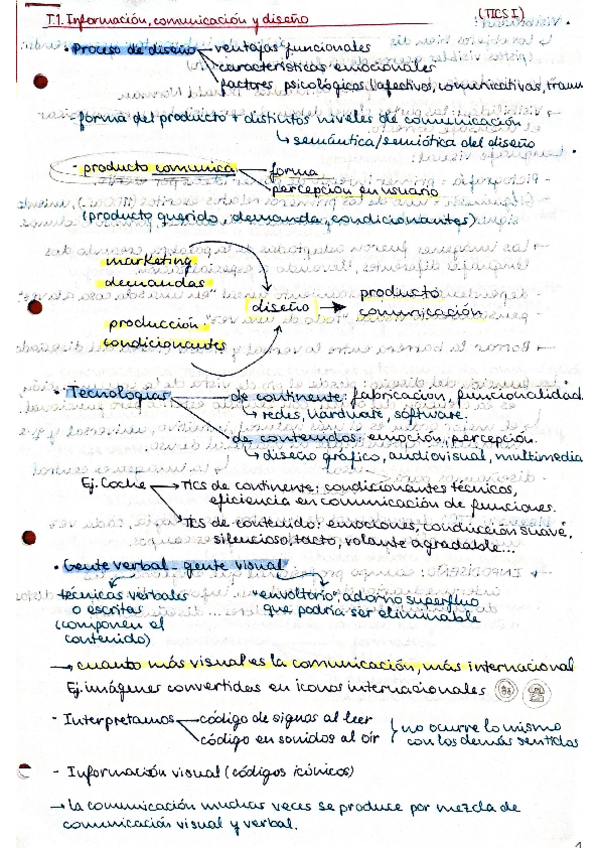 T.1. Información, comunicación y diseño
(TICS I)
· Proceso de diseño ventajas funcionales
características emocionales
factores psicológicos (afectivos, comunicativos, traum
- forma del producto + distintos niveles de comunicación
↳ semántica/semiótica del diseño
producto comunica forma
percepción en usuario
(producto querido, demanda, condicionantes)
marketing
demandas
diseño → producto
comunicación
producción
condicionantes
· Tecnologías de continente: fabricación, funcionalidad.
↳ redes, hardware, software.
de contenidos: emoción, percepción.
↳ diseño gráfico, audiovisual, multimedia
Ej. Coche → TICs de continente: condicionantes técnicos,
eficiencia en comunicación de funciones.
TICs de contenido: emociones, conducción suave,
silencioso, tacto, volante agradable...
· Gente verbal - gente visual
técnicas verbales
o escritas
(componen el
contenido)
"envoltorio", adorno superfluo
que podría ser eliminable
→ cuanto más visual es la comunicación, más internacional
Ej. imágenes convertidas en iconos internacionales
- Interpretamos código de signos al leer
código en sonidos al oír
no ocurre lo mismo
con los demás sentidos
- Información visual (códigos icónicos)
→ la comunicación muchas veces se produce por mezcla de
comunicación visual y verbal.